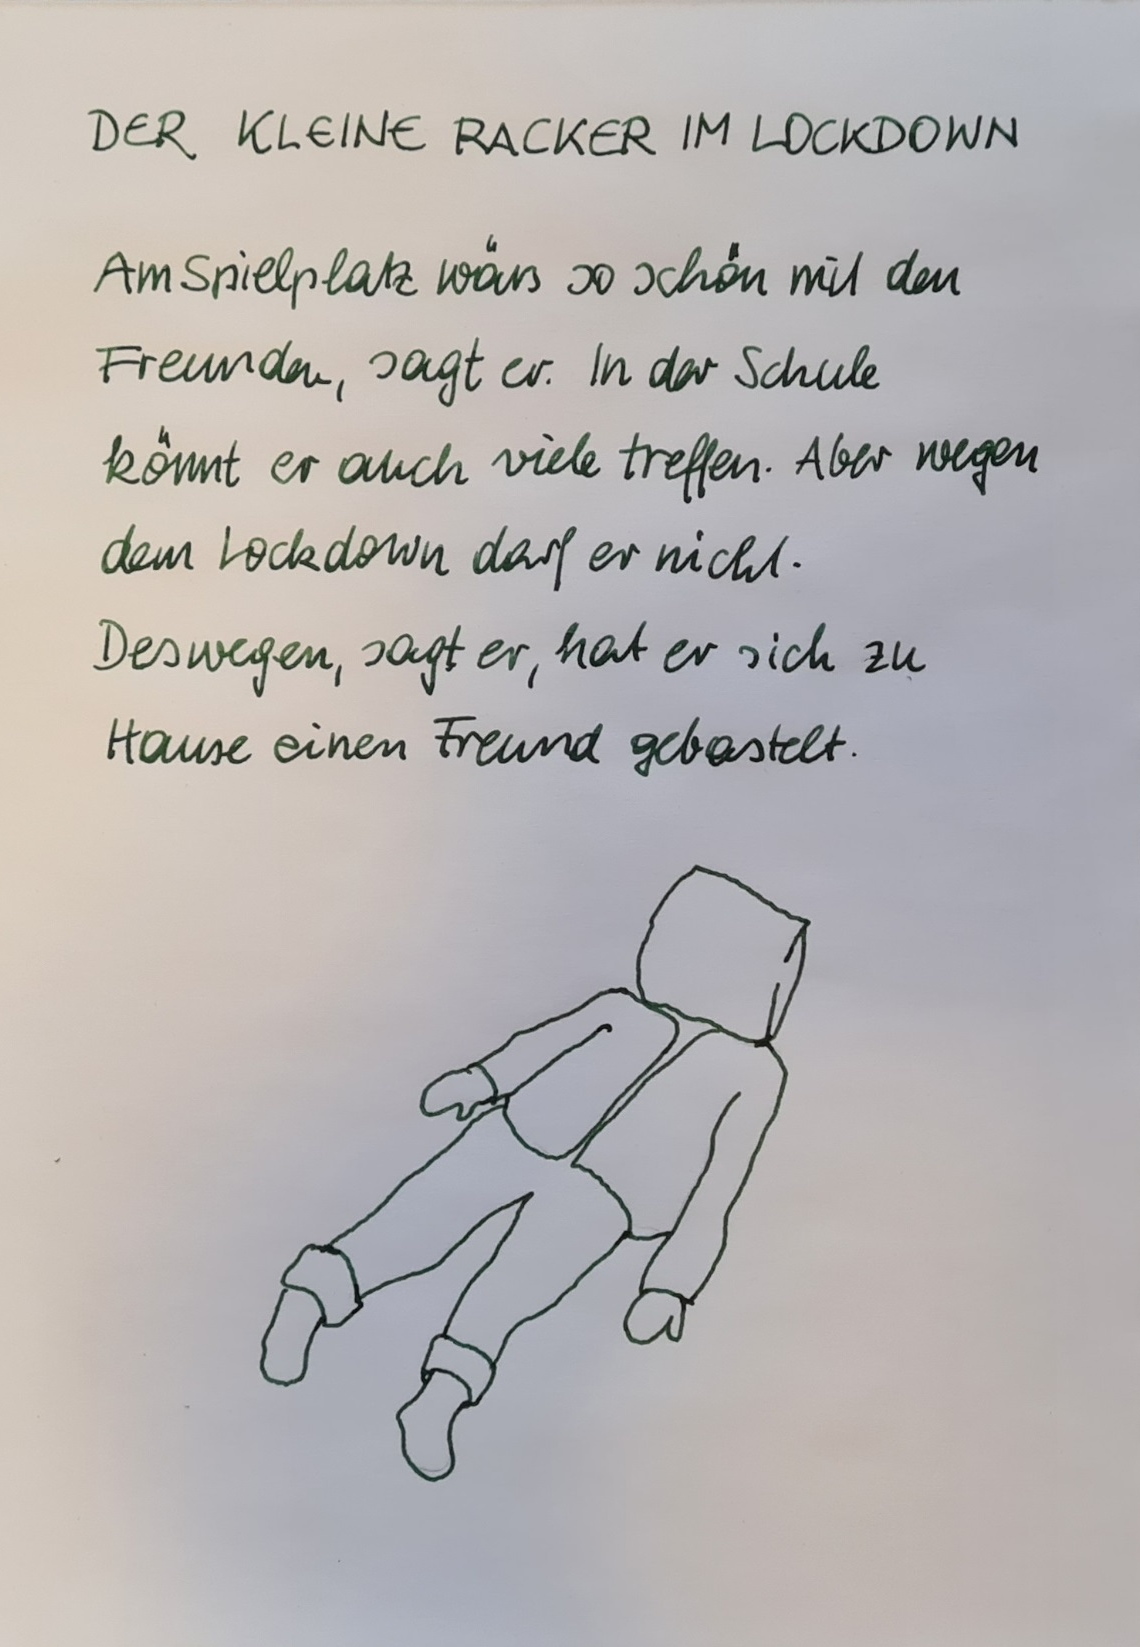 DER KLEINE RACKER IM LOCKDOWN
Am Spielplatz wärs so schön mit den
Freunden, sagt er. In der Schule
könnt er auch viele treffen. Aber wegen
dem Lockdown darf er nicht.
Deswegen, sagt er, hat er sich zu
Hause einen Freund gebastelt.